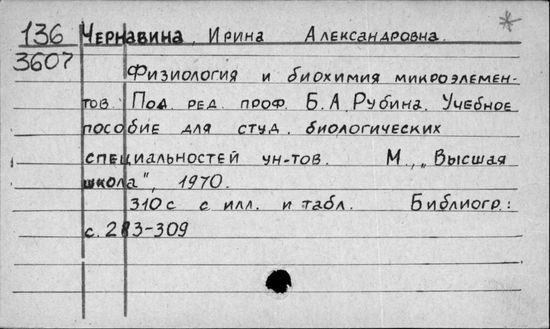 136 Чернавина, Ирина Александровна.
3607
Физиология и биохимия микроэлемен-
тов. Под ред. проф. Б.А.Рубина. Учебное
пособие для студ. биологических
специальностей ун-тов. М., „Высшая
школа", 1970.
310с с илл. и табл. Библиогр.:
с. 283-309